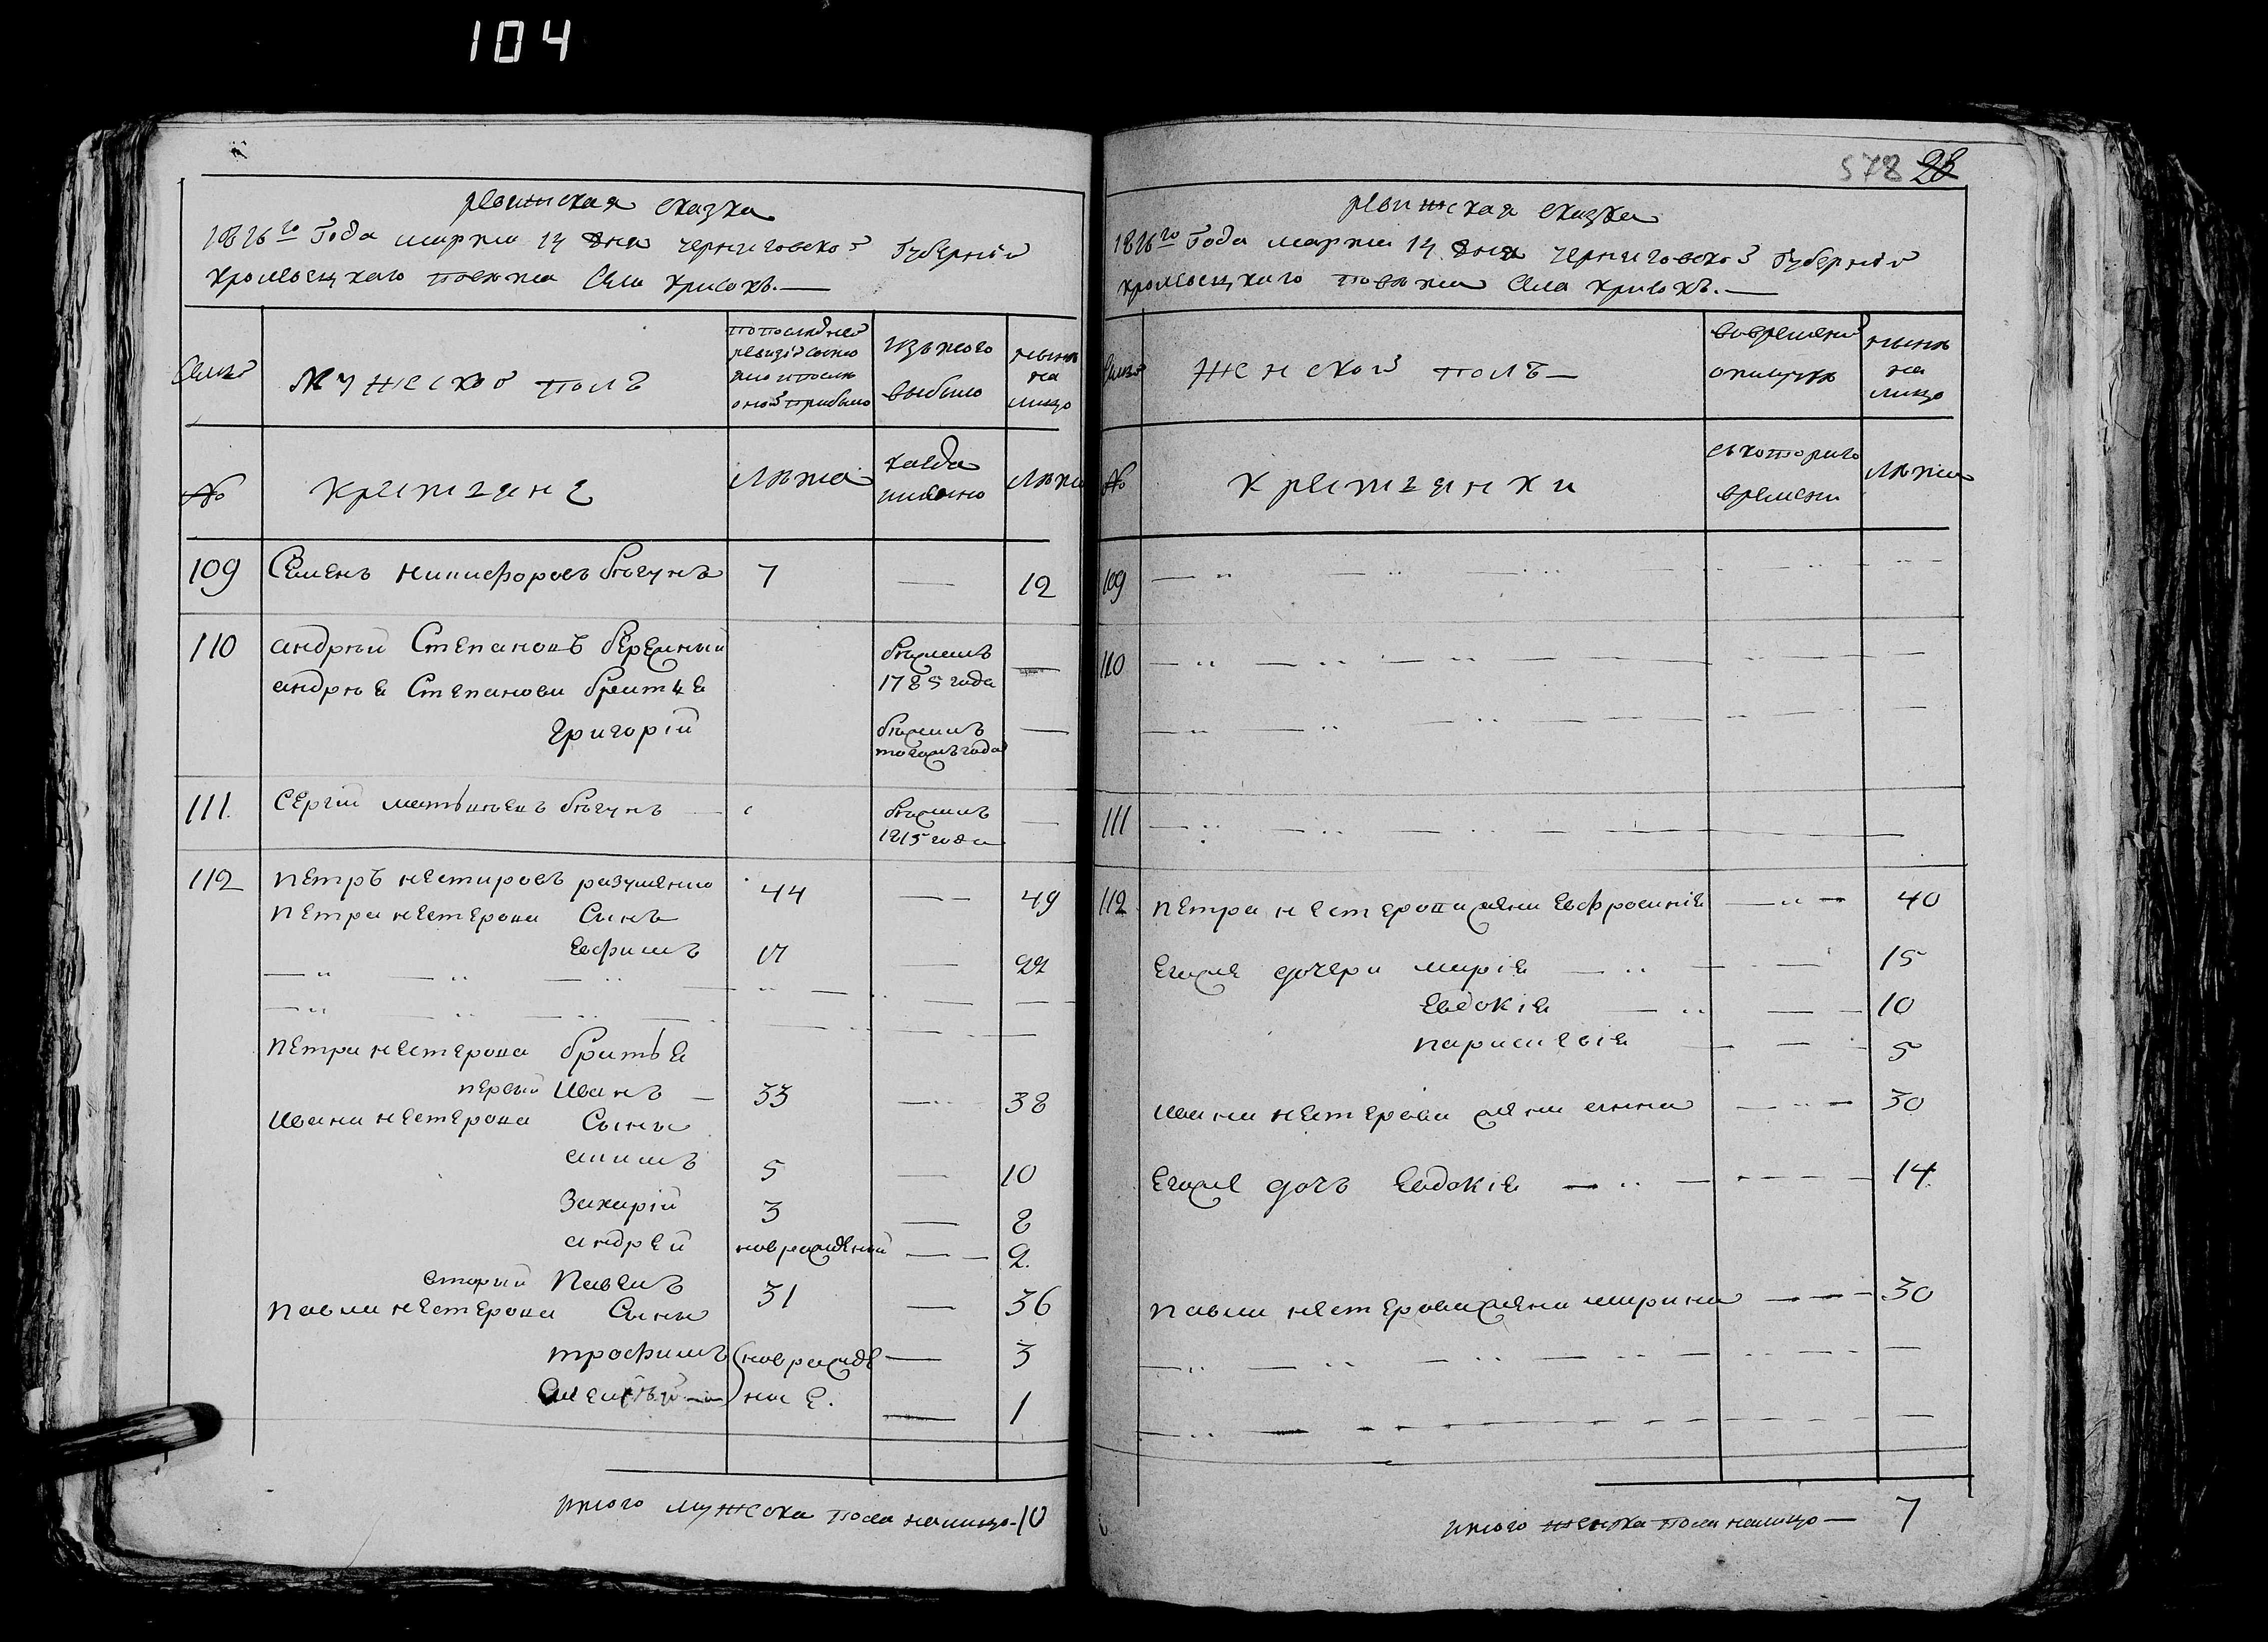 104
578 28
ревижская сказка
1816го Года марта 14 дня черниговской Губерніи
кролевецкаго повета Села Крисокъ.
Семьи
Мужеской полъ
по последней
ревизіи состо
яло и после
оной прибыло
изъ того
выбыло
ныне
на
лицо
№
крестяне
Лета
когда
имянно
Лета
109 Семенъ никифоровъ бегунъ 7 — 12
110 андрей Степановъ бережный бежалъ 1785 года —
андрея Степанова братья
григорій бежалъ тогожъ года —
111. Сергій матвеевъ бегунъ бежалъ 1815 года —
112 петръ нестировъ разуменко 44 — 49
петра нестерова Сынъ
Евфимъ 17 — 22
петра нестерова братья
первый Иванъ — 33 — 38
Ивана нестерова Сыны
5 — 10
Захарій 3 — 8
андрей новрожденый — 2.
вторый Павелъ 31 — 36
павла нестерова Сыны
трофимъ новрожде — 3
ные. — 1
итого мужеска пола налицо - 10
ревижская сказка
1816го Года марта 14 дня черниговской Губерніи
кролевецкаго повета Села Крисокъ.
Семьи
Женской полъ —
вовременной
отлучке
ныне
на
лицо
№
крестянки
съ котораго
времени
Лета
109
110
111
112 петра нестерова жена Евфросинія 40
Егоже дочери марія 15
Евдокія 10
парасковія 5
Ивана нестерова жена анна 30
Егоже дочъ Евдокія 14
павла нестерова жена марина 30
итого женска пола налицо — 7